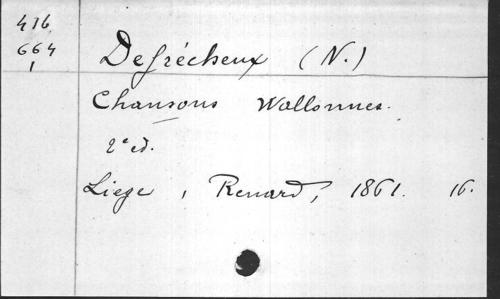 416
664
1
Defrécheux (N.)
Chansons Wallonnes.
2e ed.
Liege, Renard, 1861. 16.